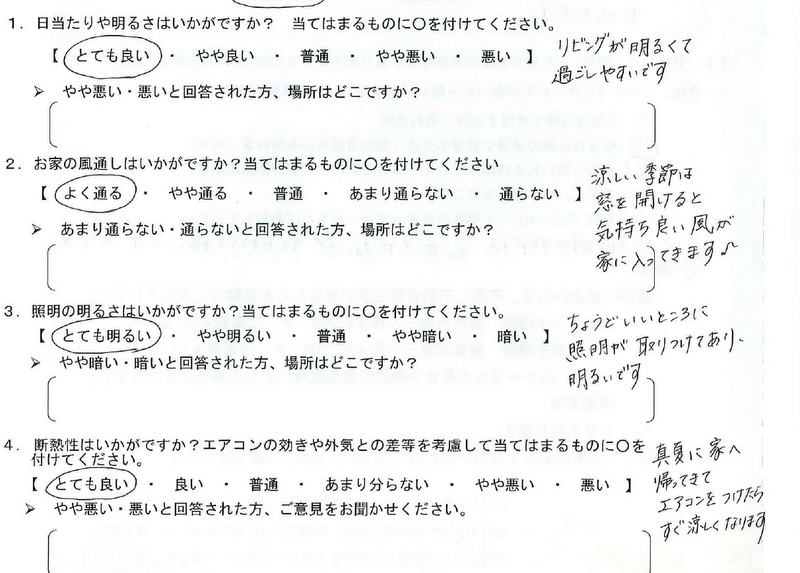 1．日当たりや明るさはいかがですか？　当てはまるものに〇を付けてください。
【　とても良い　・　やや良い　・　普通　・　やや悪い　・　悪い　】
リビングが明るくて
過ごしやすいです
➤　やや悪い・悪いと回答された方、場所はどこですか？
2．お家の風通しはいかがですか？当てはまるものに〇を付けてください
【　よく通る　・　やや通る　・　普通　・　あまり通らない　・　通らない　】
涼しい季節は
窓を開けると
気持ち良い風が
家に入ってきます♪
➤　あまり通らない・通らないと回答された方、場所はどこですか？
3．照明の明るさはいかがですか？当てはまるものに〇を付けてください。
【　とても明るい　・　やや明るい　・　普通　・　やや暗い　・　暗い　】
ちょうどいいところに
照明が取りつけてあり、
明るいです
➤　やや暗い・暗いと回答された方、場所はどこですか？
4．断熱性はいかがですか？エアコンの効きや外気との差等を考慮して当てはまるものに〇を
付けてください。
【　とても良い　・　良い　・　普通　・　あまり分らない　・　やや悪い　・　悪い　】
真夏に家へ
帰ってきて
エアコンをつけたら
すぐ涼しくなります
➤　やや悪い・悪いと回答された方、ご意見をお聞かせください。